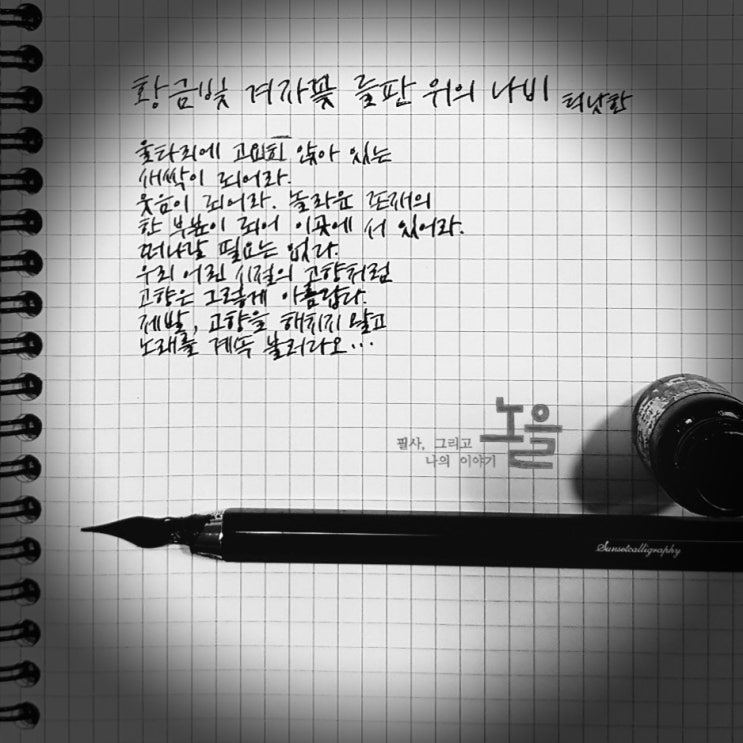 황금빛 겨자꽃 들판 위의 나비 틱낫한
울타리에 고요히 앉아 있는
새싹이 되어라.
웃음이 되어라. 놀라운 존재의
한 부분이 되어 이곳에 서 있어라.
떠나갈 필요는 없다.
우리 어린 시절의 고향처럼
고향은 그렇게 아름답다.
제발, 고향을 해치지 말고
노래를 계속 불러다오...
필사, 그리고
나의 이야기
노을
Sunsetcalligraphy